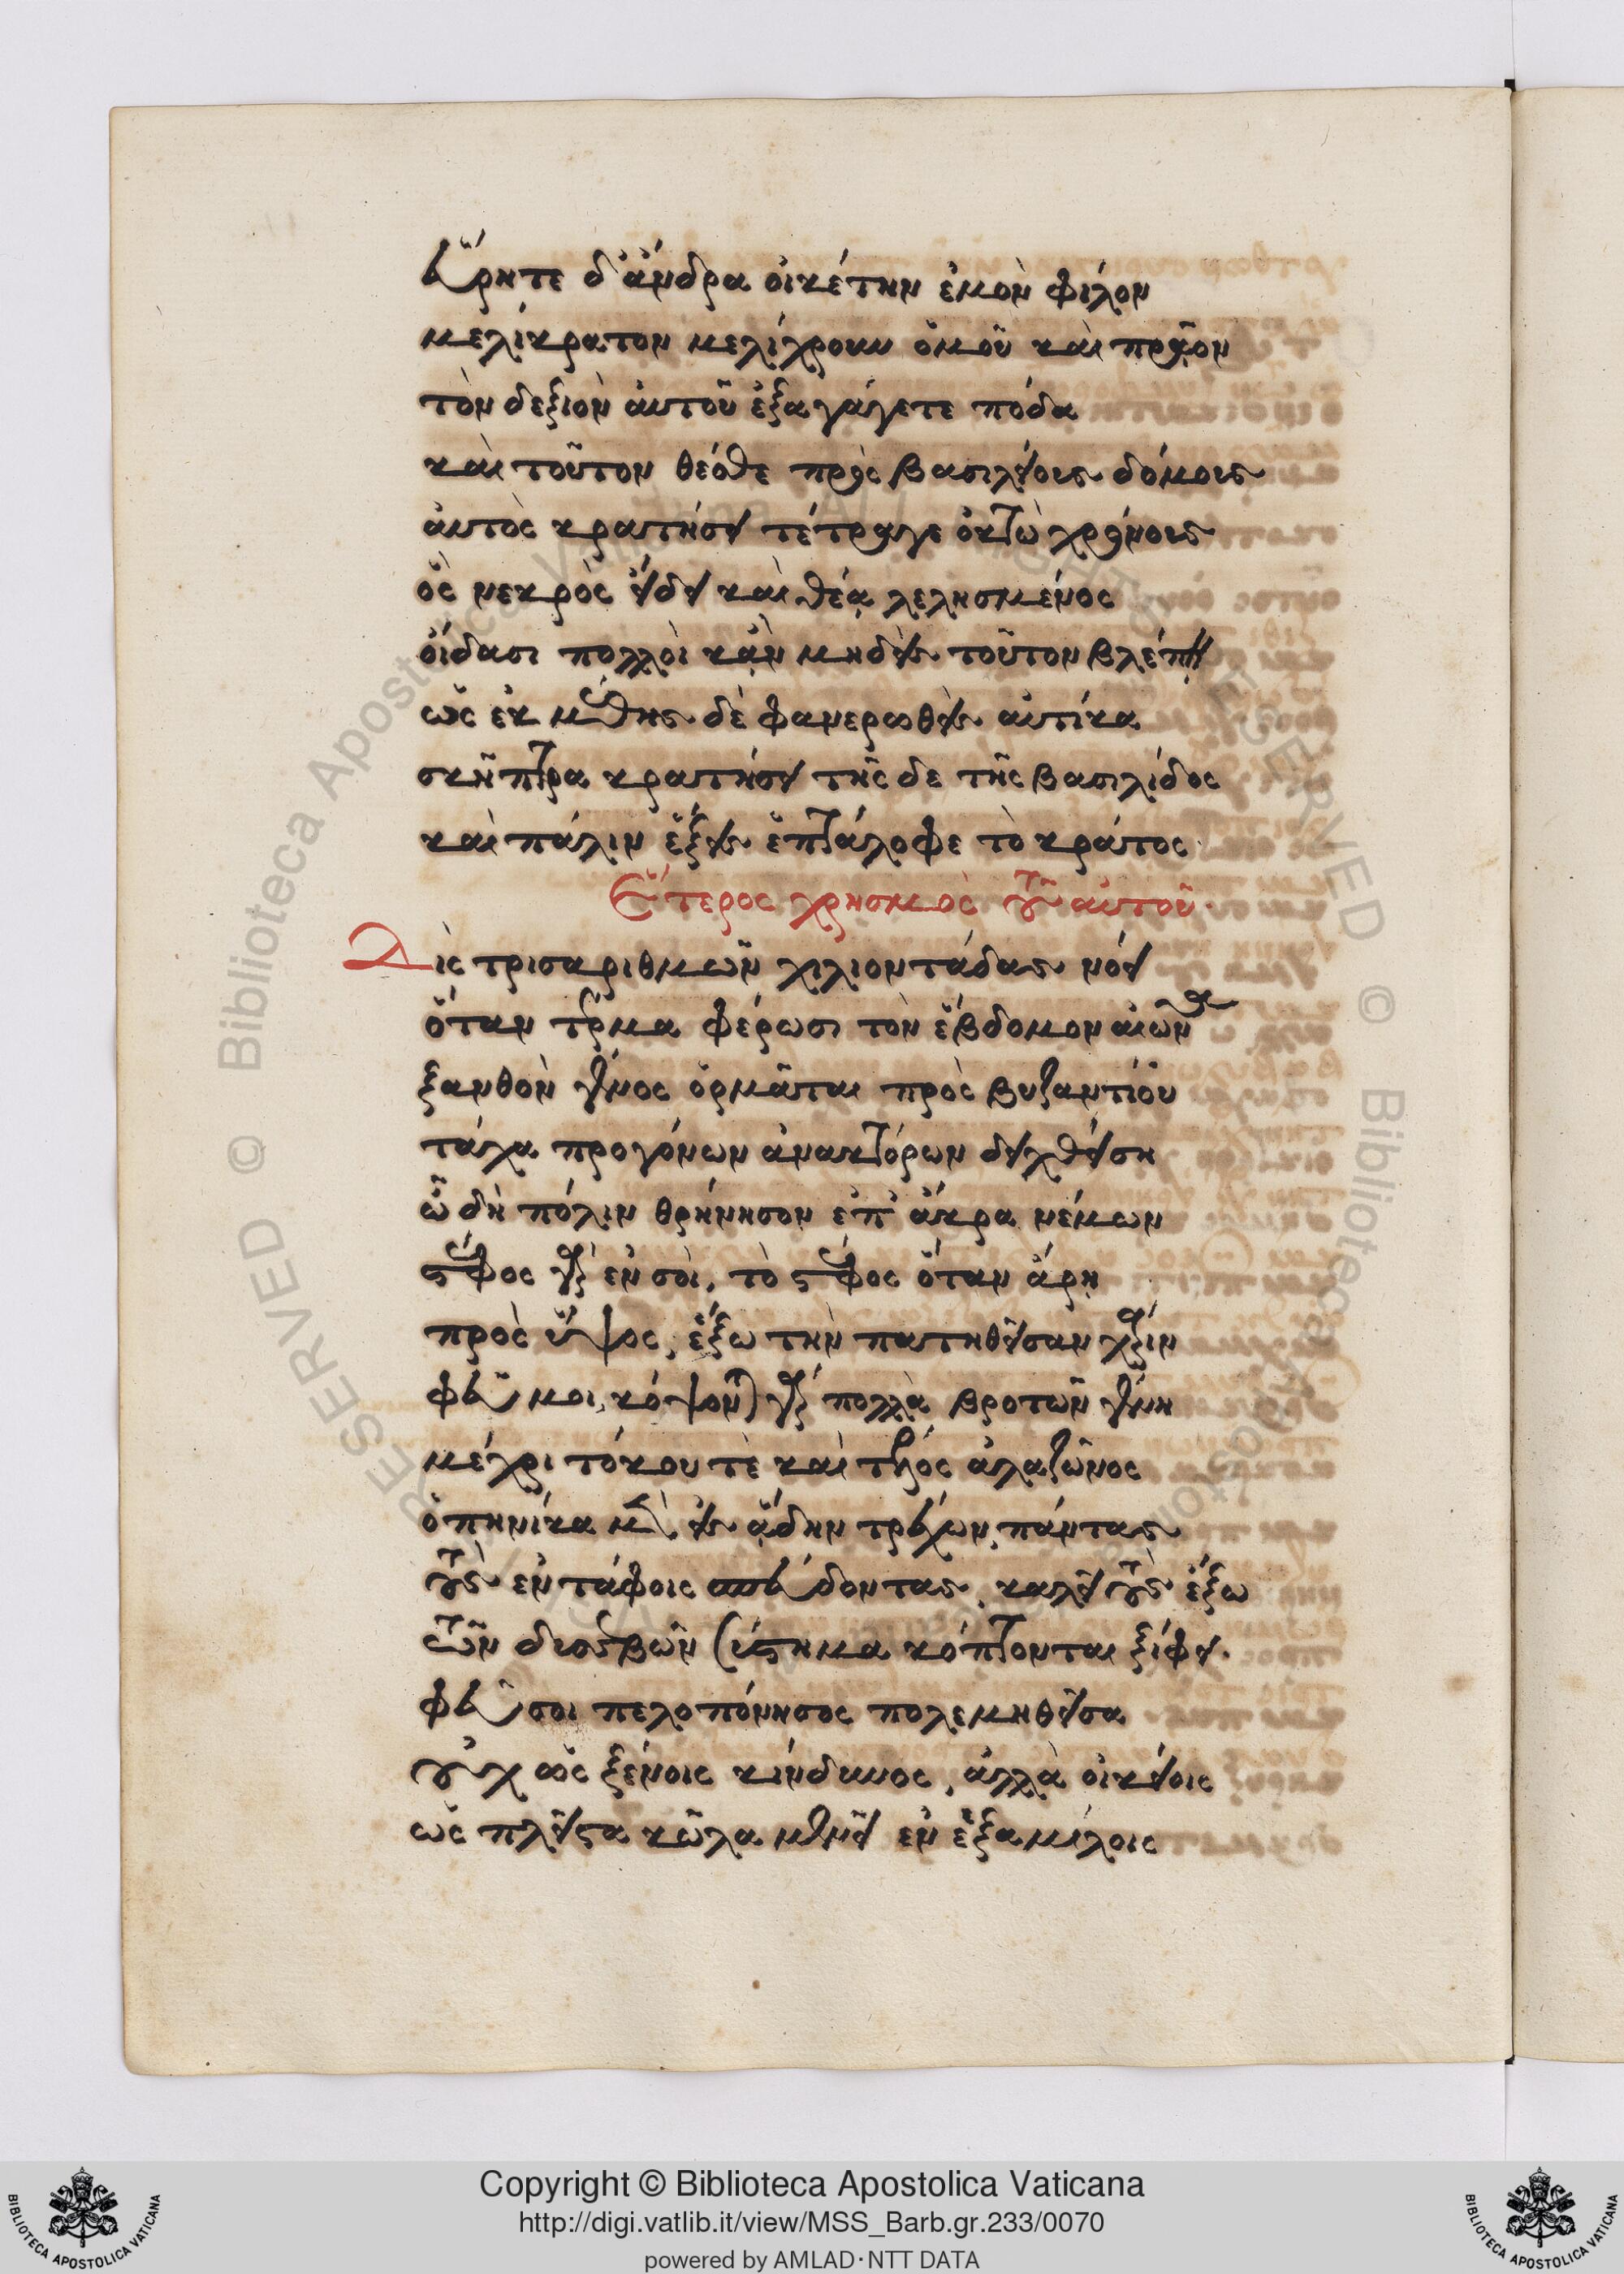 εὕρητε δ' ἄνδρα οἰκέτην ἐμὸν φίλον
μελίκρατον μελίχρουν ὁμοῦ καὶ πρᾷον
τὸν δεξιὸν αὐτοῦ ἐξαγάγετε πόδα
καὶ τοῦτον θέσθε πρὸς βασιλείους δόμους
αὐτὸς κρατήσει τέτραγε ὀκτὼ χρόνους
ὃς νεκρὸς εἴδει καὶ θέᾳ λελησμένος
οἴδασι πολλοὶ κἂν μηδεὶς τοῦτον βλέπῃ
ὡς ἐκ μέθης δὲ φανερωθεὶς αὐτίκα
σκῆπτρα κρατήσει τῆς δε τῆς βασιλίδος
καὶ πάλιν ἕξεις ἑπτάλοφε τὸ κράτος
Ἕτερος χρησμὸς τοῦ αὐτοῦ.
Δὶς τρισαριθμῶν χιλιοντάδας νόει
ὅταν τέρμα φέρωσι τὸν ἕβδομον αἰῶνα
ξανθὸν γένος ὁρμᾶται πρὸς βυζαντίου
τάχα προγόνων ἀνακτόρων δειχθείση
ὦ δὴ πόλιν θρήνησον ἐπ' ἄκρα νέμων
στέφος γὰρ ἐν σοὶ, τὸ στέφος ὅταν ἄρῃ
πρὸς ὕψος, ἕξω τὴν πατηθεῖσαν χάριν
φεῦ μοι, κόψονται γὰρ πολλὰ βροτῶν γένη
μέχρι τόκου τὲ καὶ τέλος ἀλαζῶνος
ὁπηνίκα μὲν εἰς ᾅδην τρέχων, πάντας
τοὺς ἐν τάφοις εὕδοντας, καλεῖ τοὺς ἔξω
τῶν δυσσεβῶν σύστημα κόπτονται ξίφει.
φεῦ σοι πελοπόνησος πολεμηθεῖσα
οὐχ ὡς ξένοις κίνδυνος, ἀλλὰ οἰκείοις
ὡς πλεῖστα κῶλα μένει ἐν ἑξαμίλοις
RESERVED © Biblioteca Apostolica Vaticana
Copyright © Biblioteca Apostolica Vaticana
http://digi.vatlib.it/view/MSS_Barb.gr.233/0070
powered by AMLAD·NTT DATA
BIBLIOTECA APOSTOLICA VATICANA
BIBLIOTECA APOSTOLICA VATICANA